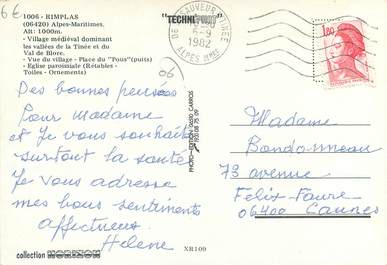 6€
1006 - RIMPLAS
(06420) Alpes-Maritimes.
Alt: 1000m.
- Village médiéval dominant
les vallées de la Tinée et du
Val de Blore.
- Vue du village - Place du "Pous" (puits)
- Eglise paroissiale (Retables -
Toiles - Ornements)
06
Des bonnes pensées
Pour Madame
et Je vous souhaite
surtout la santé
Je vous adresse
mes bons sentiments
affectueux
Helene
XR 109
collection
PHOTO-EDITION 06510 CARROS
SAUVEUR
6-9
1982
ALPES MMES
1,80
Madame
Bondonneau
73 avenue
Felix-Faure
06400 Cannes